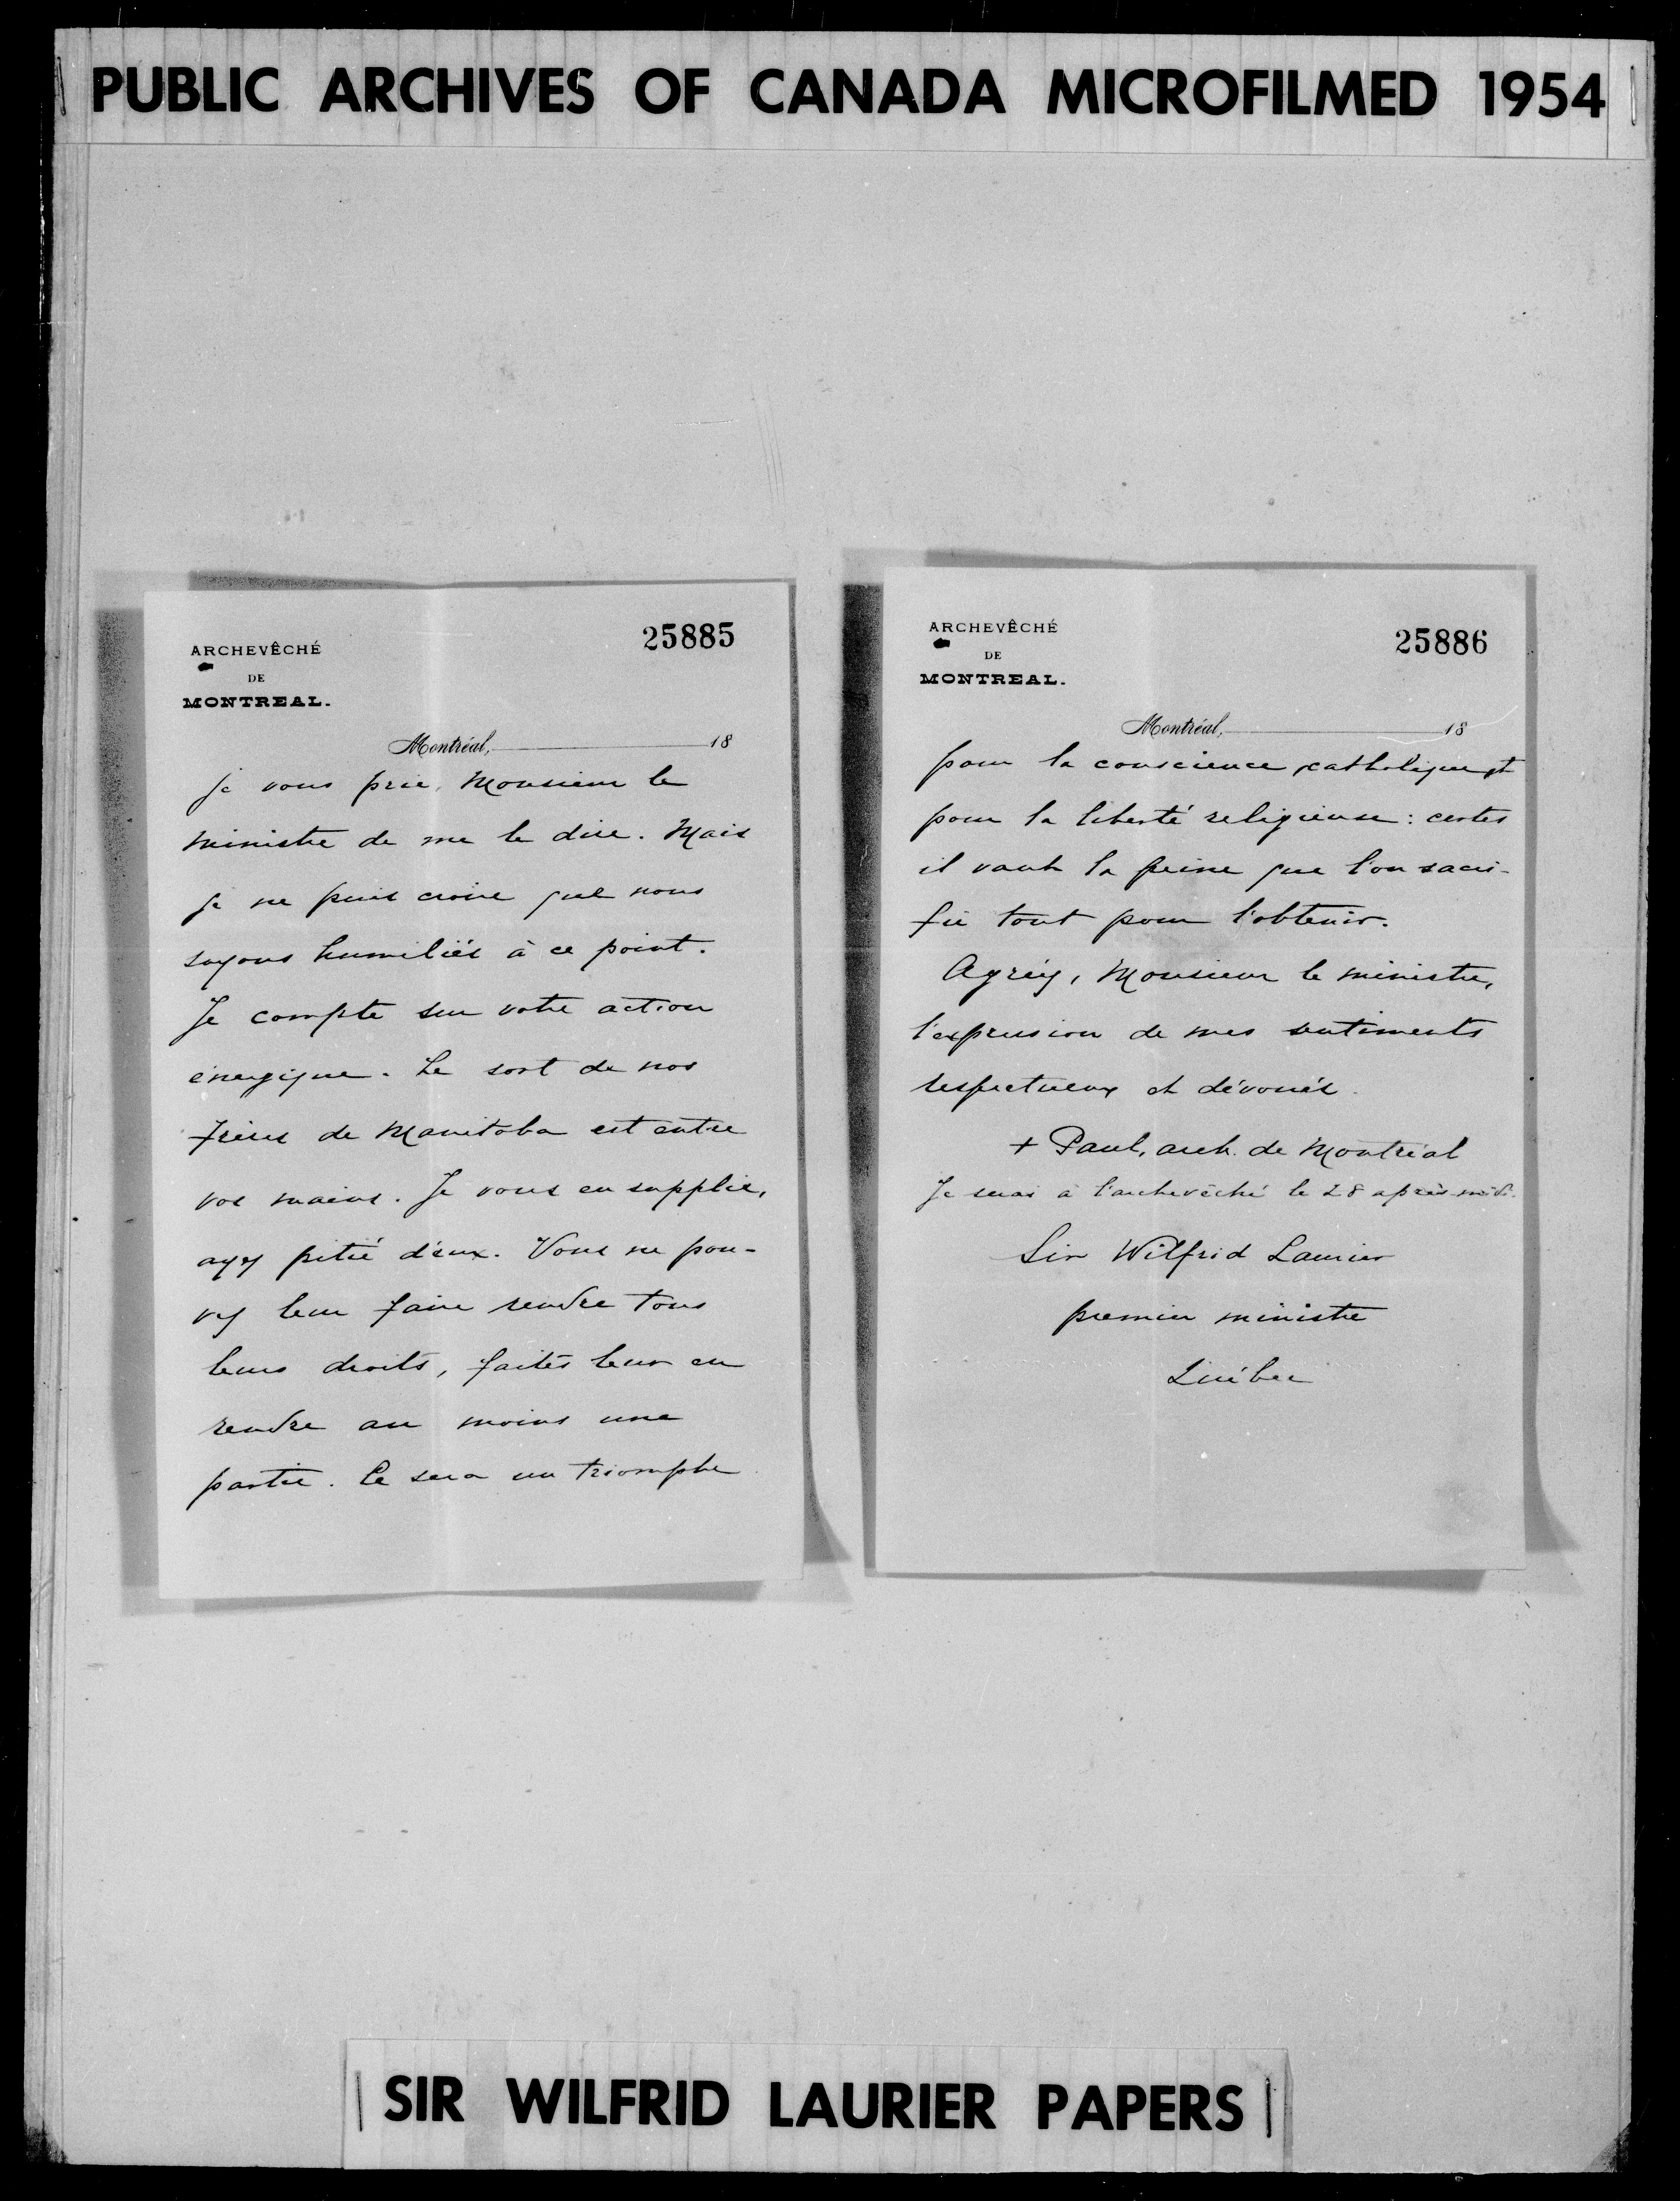 PUBLIC ARCHIVES OF CANADA MICROFILMED 1954
25885
ARCHEVÊCHÉ
DE
MONTREAL.
Montréal, 18
je vous prie, Monsieur le
ministre de me le dire. Mais
je ne puis croire que nous
soyons humiliés à ce point.
Je compte sur votre action
énergique. Le sort de nos
frères de Manitoba est entre
vos mains. Je vous en supplie,
ayez pitié d'eux. Vous ne pou-
vez leur faire rendre tous
leurs droits, faites leur en
rendre au moins une
partie. Ce sera un triomphe
25886
ARCHEVÊCHÉ
DE
MONTREAL.
Montréal, 18
pour la conscience catholique et
pour la liberté religieuse: certes
il vaut la peine que l'on sacri-
fie tout pour l'obtenir.
Agréez, Monsieur le ministre,
l'expression de mes sentiments
respectueux et dévoués.
+ Paul, arch. de Montréal
Je serai à l'archevêché le 28 après-midi.
Sir Wilfrid Laurier
premier ministre
Québec
SIR WILFRID LAURIER PAPERS